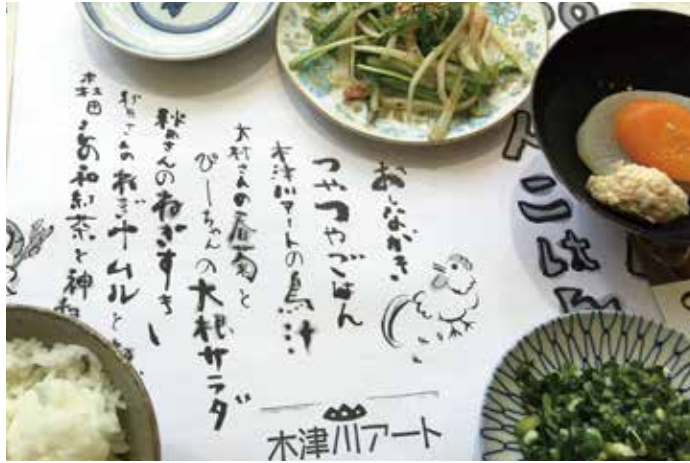 トごはん
おしながき
つやつやごはん
木津川アートの鳥汁
村さんの春菊と
ぴーちゃんの大根サラダ
さんのねぎすき
さんのねぎナムルと
の和紅茶と神
木津川アート